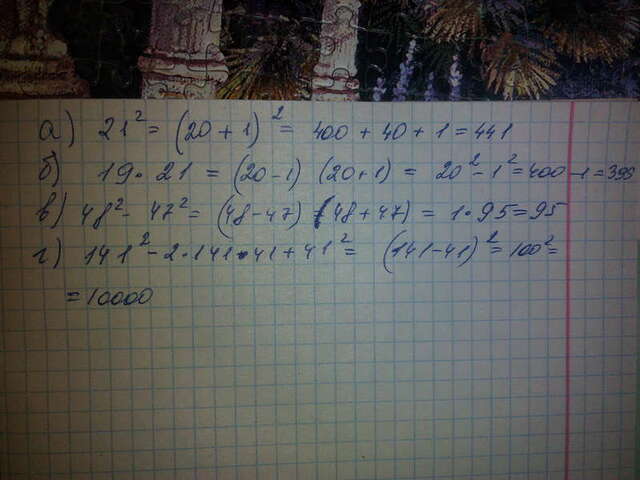 а) 21² = (20 + 1)² = 400 + 40 + 1 = 441
б) 19 · 21 = (20 - 1) (20 + 1) = 20² - 1² = 400 - 1 = 399
в) 48² - 47² = (48 - 47) (48 + 47) = 1 · 95 = 95
г) 141² - 2 · 141 · 41 + 41² = (141 - 41)² = 100² =
= 10000